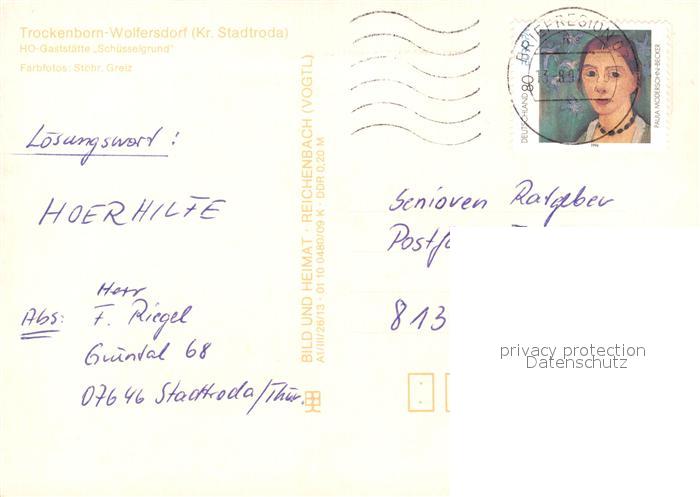 Trockenborn-Wolfersdorf (Kr. Stadtroda)
HO-Gaststätte „Schüsselgrund"
Farbfotos: Stöhr, Greiz
Lösungswort:
HOERHILFE
Abs: Herr
F. Riegel
Grüntal 68
07646 Stadtroda/Thür.
BILD UND HEIMAT · REICHENBACH (VOGTL)
A1/III/26/13 · 01 10 0480/09 K · DDR 0,20 M
BRIEFREGION
DEUTSCHLAND 80
PAULA MODERSOHN-BECKER
1996
Senioren Ratgeber
Postf
813
privacy protection
Datenschutz